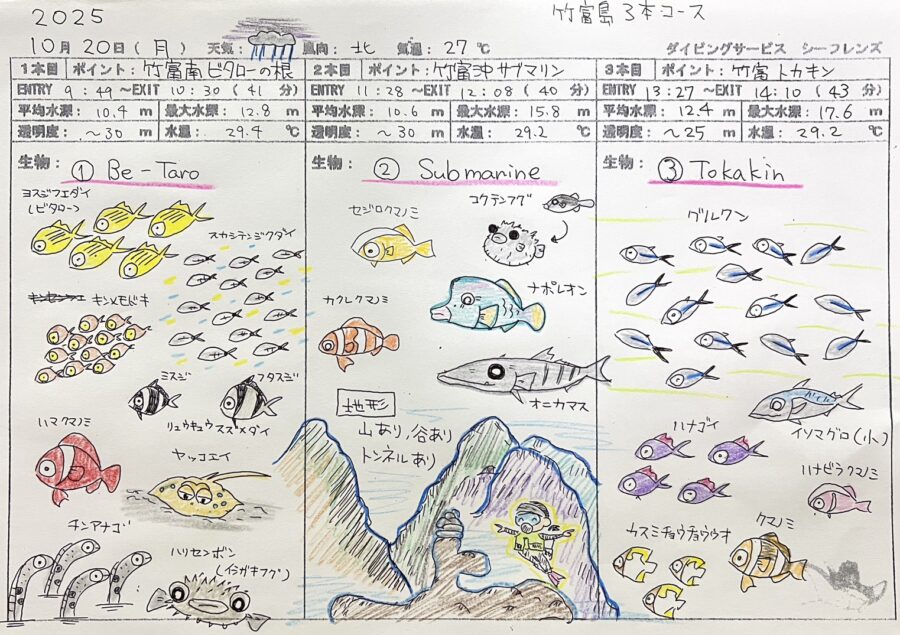 2025
竹富島 3本コース
10月20日(月) 天気: 風向: 北 気温: 27℃ ダイビングサービス シーフレンズ
1本目 ポイント: 竹富南ビタローの根
ENTRY 9:49～EXIT 10:30 (41 分)
平均水深: 10.4 m 最大水深: 12.8 m
透明度: ～30 m 水温: 29.4 ℃
生物:
① Be-Taro
ヨスジフエダイ
(ビタロー)
スカシテンジクダイ
キンメモドキ
ミスジ
フタスジ
リュウキュウスズメダイ
ハマクマノミ
ヤッコエイ
チンアナゴ
ハリセンボン
(イシガキフグ)
2本目 ポイント: 竹富沖サブマリン
ENTRY 11:28～EXIT 12:08 (40 分)
平均水深: 10.6 m 最大水深: 15.8 m
透明度: ～30 m 水温: 29.2 ℃
生物:
② Submarine
セジロクマノミ
コクテンフグ
ナポレオン
カクレクマノミ
オニカマス
地形
山あり,谷あり
トンネルあり
3本目 ポイント: 竹富トカキン
ENTRY 13:27～EXIT 14:10 (43 分)
平均水深: 12.4 m 最大水深: 17.6 m
透明度: ～25 m 水温: 29.2 ℃
生物:
③ Tokakin
グルクン
イソマグロ(小)
ハナゴイ
ハナビラクマノミ
カスミチョウチョウウオ
クマノミ